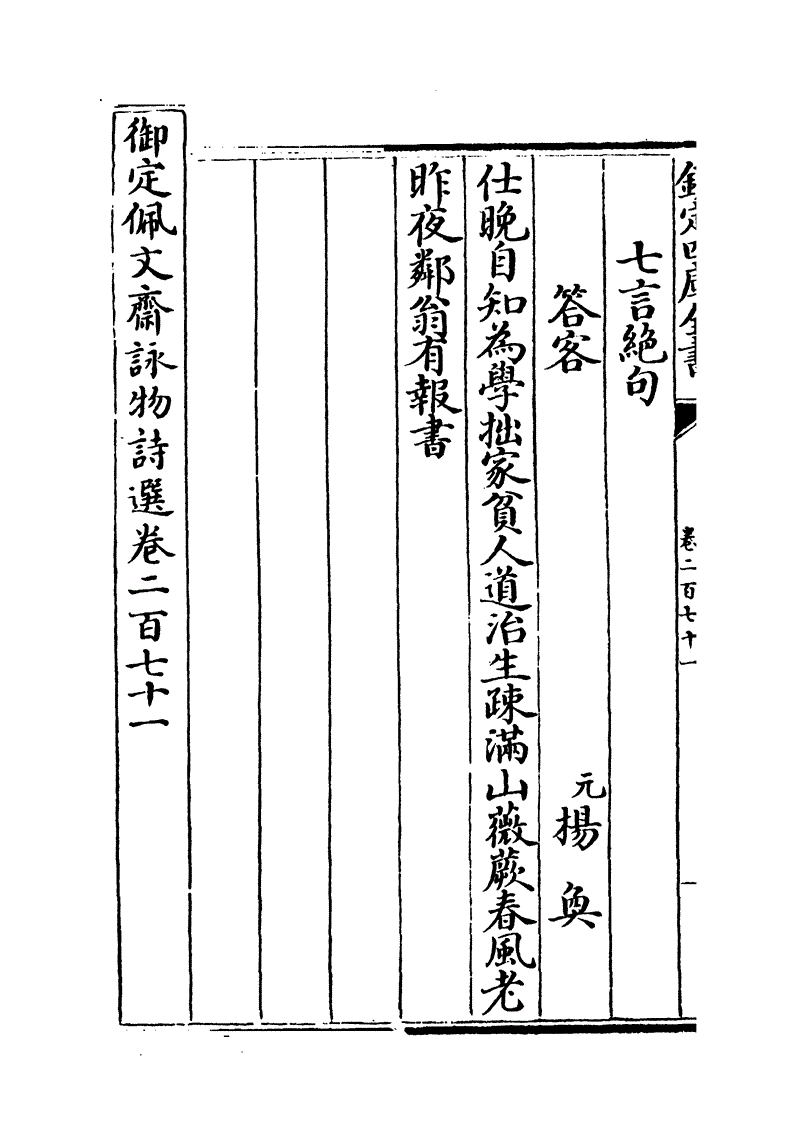 欽定四庫全書
卷二百七十一
七言絶句
答客
元揚奐
仕晚自知為學拙家貧人道治生疎滿山薇蕨春風老
昨夜鄰翁有報書
御定佩文齋詠物詩選卷二百七十一